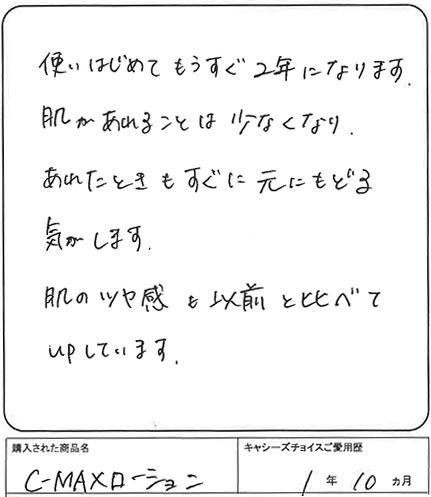 使いはじめてもうすぐ2年になります.
肌があれることは少なくなり.
あれたときもすぐに元にもどる
気がします.
肌のツヤ感も以前と比べて
upしています.
購入された商品名
キャシーズチョイスご愛用歴
C-MAXローション
1年10ヵ月